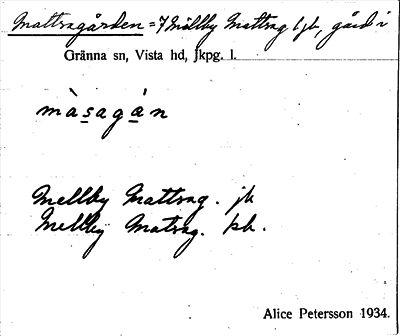 Mattsgården = 7 Mellby Mattsag 1 jb, gård i
Gränna sn, Vista hd, Jkpg. l.
màsagán
Mellby Mattsag. jb
Mellby Matsag. kb.
Alice Petersson 1934.